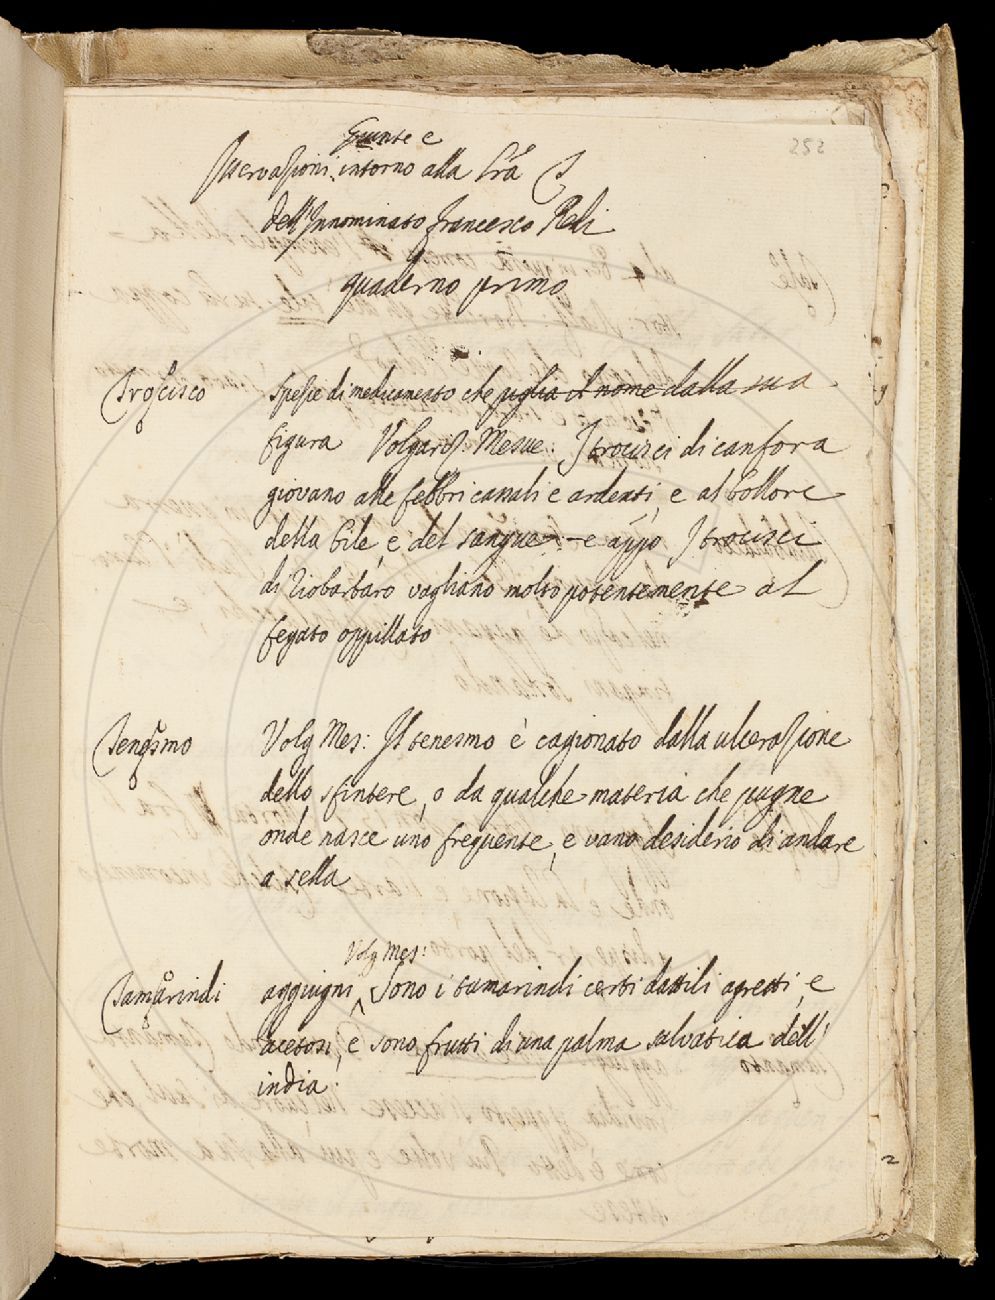 252
Giunte e
Osservazioni intorno alla Lrã T
dell'Innominato Francesco Redi
quaderno primo
Trocisco spezie di medicamento che piglia il nome dalla sua
figura Volgariz. Mesue: I trocisci di canfora
giovano alle febbri causali e ardenti, e al bollore
della bile, e del sangue. e app̃o I trocisci
di riobarbaro vagliano molto potentemente al
fegato oppillato
Tenesmo Volg Mes: Il tenesmo è cagionato dalla ulcerazione
dello sfintere, o da qualche materia che pugne
onde nasce uno frequente, e vano desiderio di andare
a sella
Volg Mes:
Tamarindi aggiugni Sono i tamarindi certi dattili agresti, e
acetosi, e sono frutti di una palma salvatica dell'
india.
2